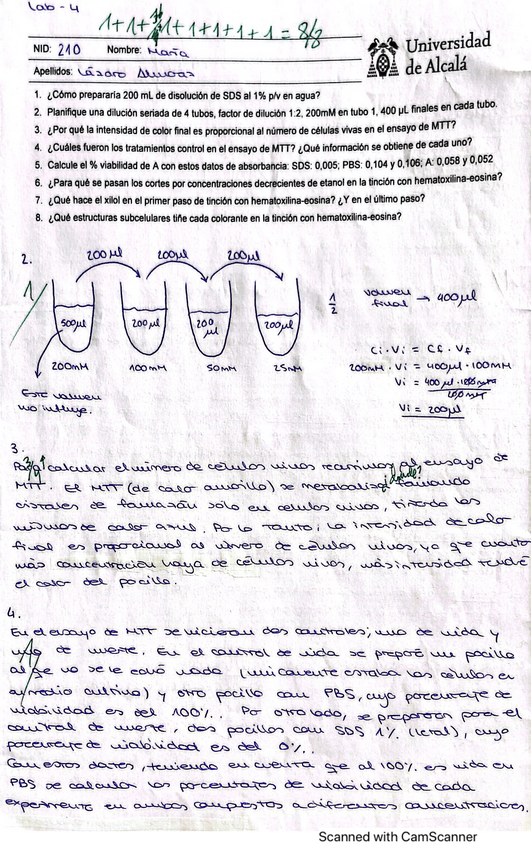 Lab-4
1+1+3/4+1+1+1+1+1 = 8/8
NID: 210 Nombre: María
Apellidos: Lázaro
Universidad
de Alcalá
1. ¿Cómo prepararía 200 mL de disolución de SDS al 1% p/v en agua?
2. Planifique una dilución seriada de 4 tubos, factor de dilución 1:2, 200mM en tubo 1, 400 µL finales en cada tubo.
3. ¿Por qué la intensidad de color final es proporcional al número de células vivas en el ensayo de MTT?
4. ¿Cuáles fueron los tratamientos control en el ensayo de MTT? ¿Qué información se obtiene de cada uno?
5. Calcule el % viabilidad de A con estos datos de absorbancia: SDS: 0,005; PBS: 0,104 y 0,106; A: 0,058 y 0,052
6. ¿Para qué se pasan los cortes por concentraciones decrecientes de etanol en la tinción con hematoxilina-eosina?
7. ¿Qué hace el xilol en el primer paso de tinción con hematoxilina-eosina? ¿Y en el último paso?
8. ¿Qué estructuras subcelulares tiñe cada colorante en la tinción con hematoxilina-eosina?
2.
200µl 200µl 200µl
1/
500µl 200µl 200µl 200µl
1/2
volumen final → 400µl
200mM 100mM 50mM 25mM
Este volumen
no influye.
Ci·Vi = Cf·Vf
200mM·Vi = 400µl·100mM
Vi = 400µl·100mM
200mM
Vi = 200µl
3.
Para calcular el número de células vivas recurrimos al ensayo de
MTT. El MTT (de color amarillo) se metaboliza formando
¿dónde?
cristales de formazán solo en células vivas, tiñendo las
mismas de color azul. Por lo tanto, la intensidad de color
final es proporcional al número de células vivas, ya que cuanto
más concentración haya de células vivas, más intensidad tendrá
el color del pocillo.
4.
En el ensayo de MTT se hicieron dos controles; uno de vida y
uno de muerte. En el control de vida se preparó un pocillo
al que no se le echó nada (únicamente estaban las células en
el medio cultivo) y otro pocillo con PBS, cuyo porcentaje de
viabilidad es del 100%. Por otro lado, se prepararon para el
control de muerte, dos pocillos con SDS 1% (letal), cuyo
porcentaje de viabilidad es del 0%.
Con estos datos, teniendo en cuenta que al 100% es vida en
PBS se calculan los porcentajes de viabilidad de cada
experimento en ambos compuestos a diferentes concentraciones.
Scanned with CamScanner